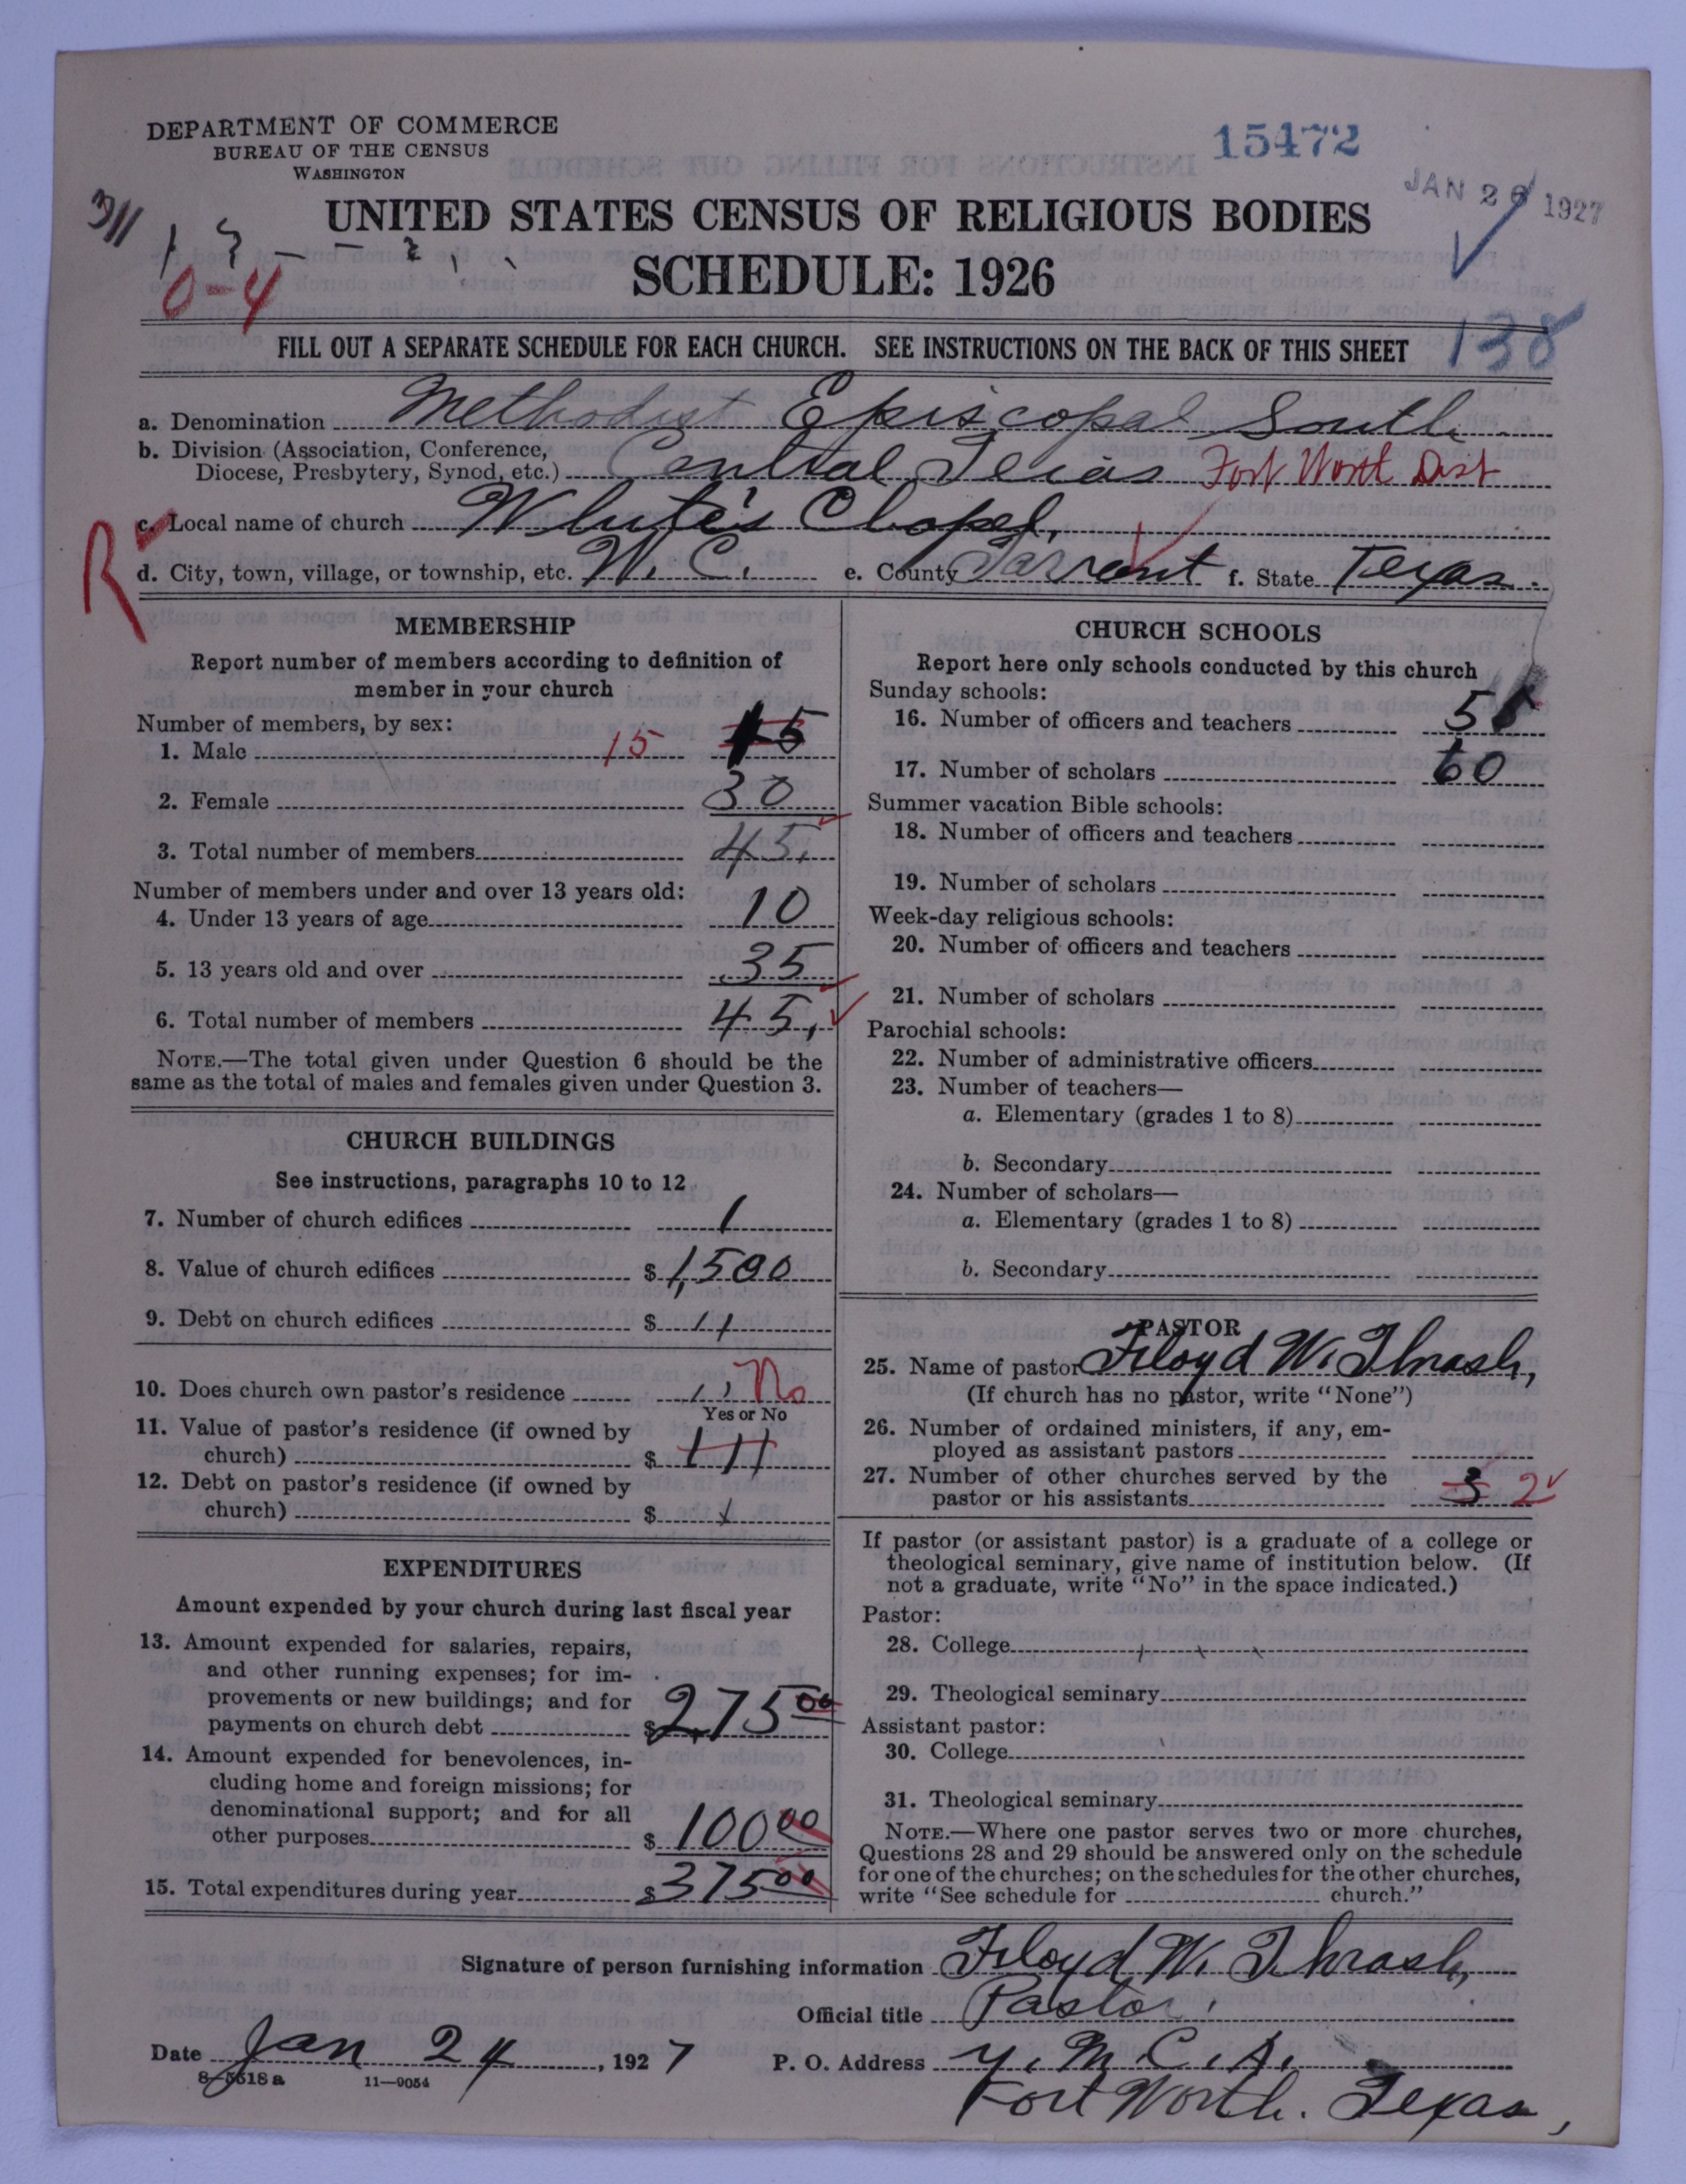 DEPARTMENT OF COMMERCE
BUREAU OF THE CENSUS
WASHINGTON
15472
JAN 26 1927
311
0-4
UNITED STATES CENSUS OF RELIGIOUS BODIES
SCHEDULE: 1926
138
FILL OUT A SEPARATE SCHEDULE FOR EACH CHURCH. SEE INSTRUCTIONS ON THE BACK OF THIS SHEET
a. Denomination Methodist Episcopal South
b. Division (Association, Conference,
Diocese, Presbytery, Synod, etc.) Central Texas Fort Worth Dist
c. Local name of church White's Chapel,
R
d. City, town, village, or township, etc. W. C. e. County Tarrant f. State Texas.
MEMBERSHIP
Report number of members according to definition of
member in your church
Number of members, by sex:
1. Male 15 15
2. Female 30
3. Total number of members 45.
Number of members under and over 13 years old:
4. Under 13 years of age 10
5. 13 years old and over 35
6. Total number of members 45.
NOTE.—The total given under Question 6 should be the
same as the total of males and females given under Question 3.
CHURCH BUILDINGS
See instructions, paragraphs 10 to 12
7. Number of church edifices 1
8. Value of church edifices $ 1,500
9. Debt on church edifices $
10. Does church own pastor's residence No
Yes or No
11. Value of pastor's residence (if owned by
church) $
12. Debt on pastor's residence (if owned by
church) $
EXPENDITURES
Amount expended by your church during last fiscal year
13. Amount expended for salaries, repairs,
and other running expenses; for im-
provements or new buildings; and for
payments on church debt $ 275 00
14. Amount expended for benevolences, in-
cluding home and foreign missions; for
denominational support; and for all
other purposes $ 100 00
15. Total expenditures during year $ 375 00
CHURCH SCHOOLS
Report here only schools conducted by this church
Sunday schools:
16. Number of officers and teachers 5
17. Number of scholars 60
Summer vacation Bible schools:
18. Number of officers and teachers
19. Number of scholars
Week-day religious schools:
20. Number of officers and teachers
21. Number of scholars
Parochial schools:
22. Number of administrative officers
23. Number of teachers—
a. Elementary (grades 1 to 8)
b. Secondary
24. Number of scholars—
a. Elementary (grades 1 to 8)
b. Secondary
PASTOR
25. Name of pastor Floyd W. Thrash,
(If church has no pastor, write "None")
26. Number of ordained ministers, if any, em-
ployed as assistant pastors
27. Number of other churches served by the
pastor or his assistants 3 2
If pastor (or assistant pastor) is a graduate of a college or
theological seminary, give name of institution below. (If
not a graduate, write "No" in the space indicated.)
Pastor:
28. College
29. Theological seminary
Assistant pastor:
30. College
31. Theological seminary
NOTE.—Where one pastor serves two or more churches,
Questions 28 and 29 should be answered only on the schedule
for one of the churches; on the schedules for the other churches,
write "See schedule for church."
Signature of person furnishing information Floyd W. Thrash,
Official title Pastor.
Date Jan 24, 1927 P. O. Address Y. M. C. A.
8-5518 a 11—9054
Fort Worth. Texas,